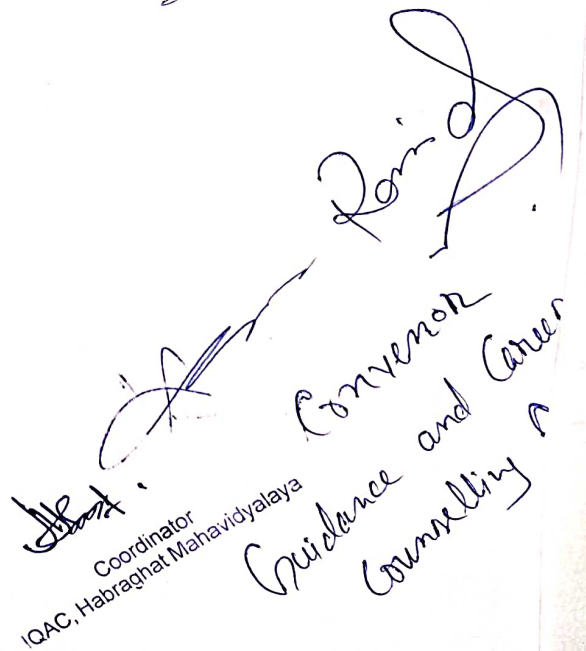 Coordinator
IQAC, Habraghat Mahavidyalaya
Convenor
Guidance and Career
Counselling